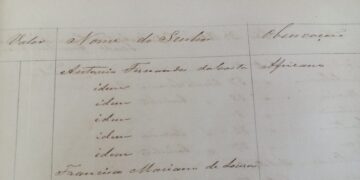 Valor Nome do Senhor Observações
Antonio Fernandes da Costa Africano
idem
idem
idem
idem
idem
Francisca Mariana de